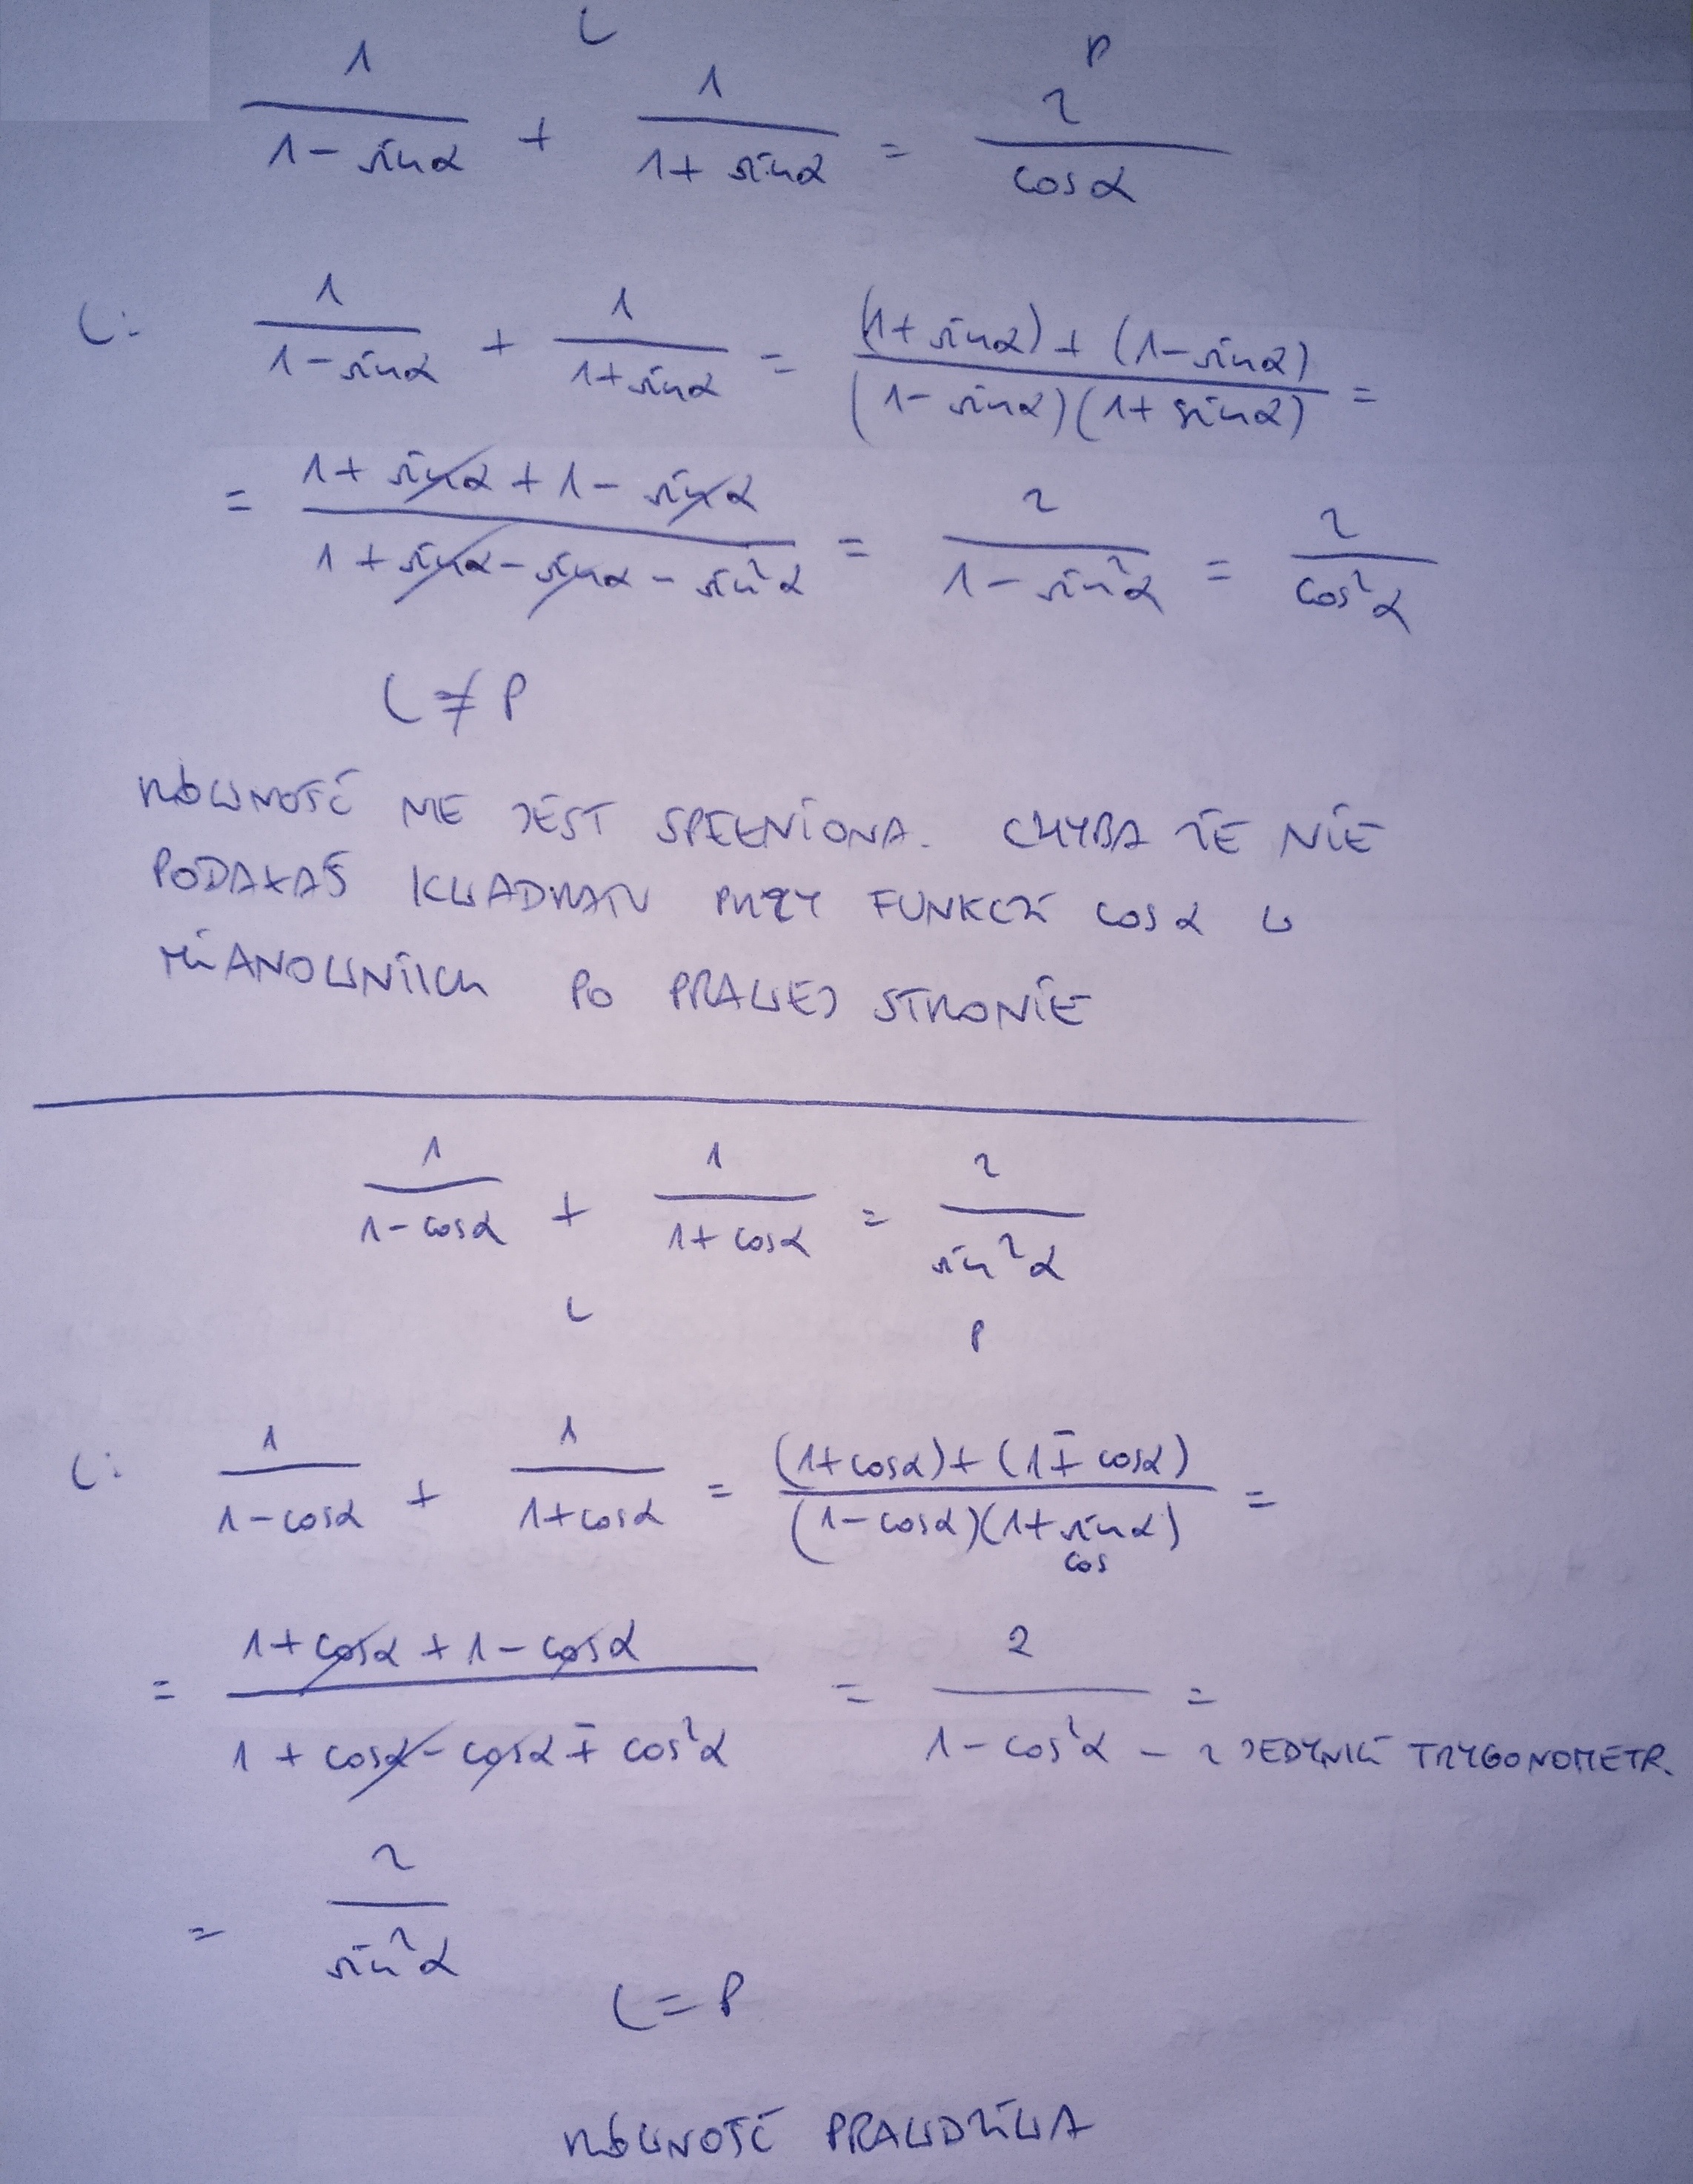 L P
1/(1 - sin α) + 1/(1 + sin α) = 2/cos α
L: 1/(1 - sin α) + 1/(1 + sin α) = ((1 + sin α) + (1 - sin α))/((1 - sin α)(1 + sin α)) =
= (1 + sin α + 1 - sin α)/(1 + sin α - sin α - sin²α) = 2/(1 - sin²α) = 2/cos²α
L ≠ P
RÓWNOŚĆ NIE JEST SPEŁNIONA. CHYBA ŻE NIE
PODAŁAŚ KWADRATU PRZY FUNKCJI cos α W
MIANOWNIKU PO PRAWEJ STRONIE
1/(1 - cos α) + 1/(1 + cos α) = 2/sin²α
L P
L: 1/(1 - cos α) + 1/(1 + cos α) = ((1 + cos α) + (1 - cos α))/((1 - cos α)(1 + sin α)) =
cos
= (1 + cos α + 1 - cos α)/(1 + cos α - cos α - cos²α) = 2/(1 - cos²α) = - Z JEDYNKI TRYGONOMETR.
= 2/sin²α
L = P
RÓWNOŚĆ PRAWDZIWA